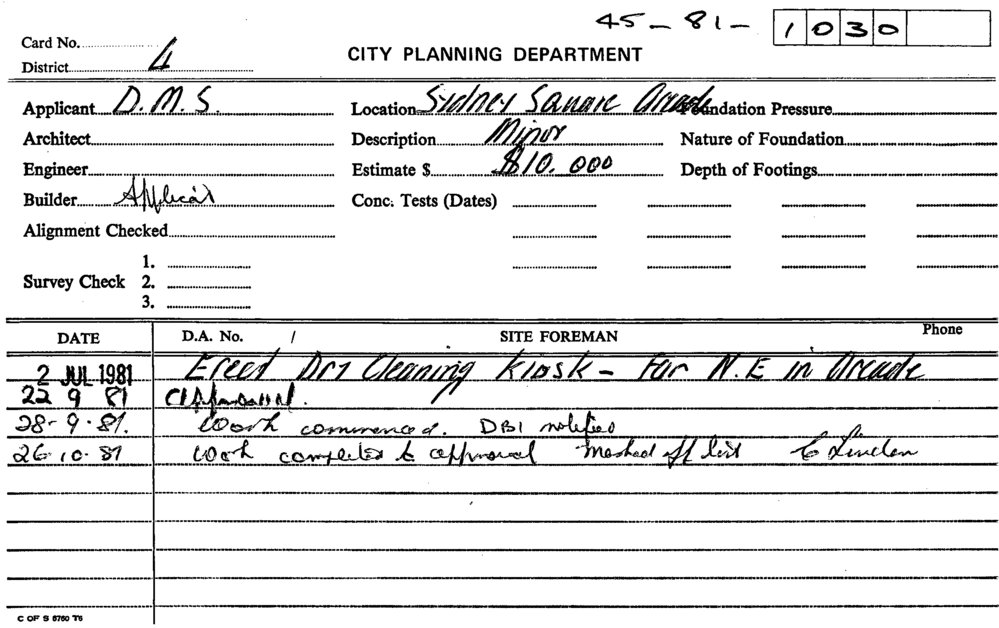 45-81-1030
Card No.
District 4
CITY PLANNING DEPARTMENT
Applicant D.M.S. Location Sydney Square Arcade Foundation Pressure
Architect Description Minor Nature of Foundation
Engineer Estimate $ $10.000 Depth of Footings
Builder Applicant Conc. Tests (Dates)
Alignment Checked
1.
Survey Check 2.
3.
DATE D.A. No. / SITE FOREMAN Phone
2 JUL 1981 Erect Dry Cleaning Kiosk - Far N.E in Arcade
22 9 81
28-9-81. Work commenced. DBI notified
26-10-81 work completed to approval Marked off list
C OF S 6760 T6